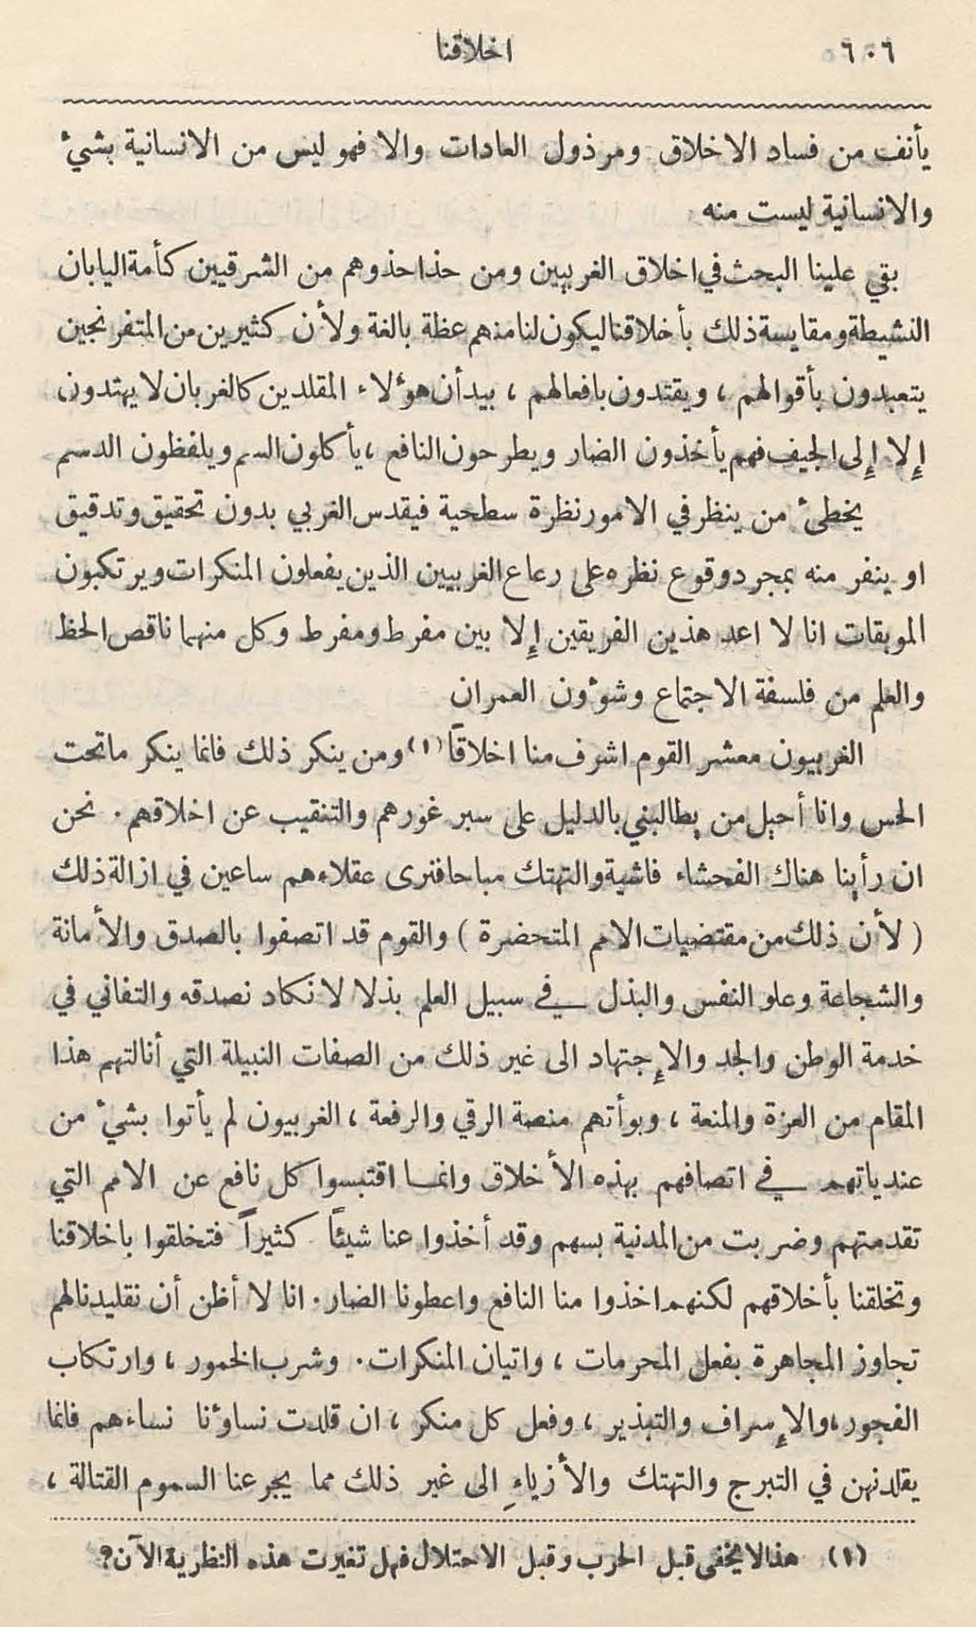 ٦٠٦ اخلاقنا
يأنف من فساد الاخلاق ومرذول العادات والا فهو ليس من الانسانية بشيٴ
والانسانية ليست منه
بقي علينا البحث في اخلاق الغربيين ومن حذا حذوهم من الشرقيين كأمة اليابان
النشيطة ومقايسة ذلك بأخلاقنا ليكون لنا منهم عظة بالغة ولأن كثيرين من المتفرنجين
يتعبدون بأقوالهم ، ويقتدون بافعالهم ، بيد أن هوٴلاء المقلدين كالغربان لا يهتدون
إلا إلى الجيف فهم يأخذون الضار ويطرحون النافع ، يأكلون السم ويلفظون الدسم
يخطىٴ من ينظر في الامور نظرة سطحية فيقدس الغربي بدون تحقيق وتدقيق
او ينفر منه بمجرد وقوع نظره على رعاع الغربيين الذين يفعلون المنكرات ويرتكبون
الموبقات انا لا اعد هذين الفريقين إلا بين مفرط ومفرط وكل منهما ناقص الحظ
والعلم من فلسفة الاجتماع وشوٴون العمران
الغربيون معشر القوم اشرف منا اخلاقاً (١) ومن ينكر ذلك فانما ينكر ماتحت
الحس وانا أحيل من يطالبني بالدليل على سبر غورهم والتنقيب عن اخلاقهم . نحن
ان رأينا هناك الفحشاء فاشية والتهتك مباحا فنرى عقلاءهم ساعين في ازالة ذلك
( لأن ذلك من مقتضيات الامم المتحضرة ) والقوم قد اتصفوا بالصدق والأمانة
والشجاعة وعلو النفس والبذل في سبيل العلم بذلا لا نكاد نصدقه والتفاني في
خدمة الوطن والجد والإجتهاد الى غير ذلك من الصفات النبيلة التي أنالتهم هذا
المقام من العزة والمنعة ، وبوأتهم منصة الرقي والرفعة ، الغربيون لم يأتوا بشيٴ من
عندياتهم في اتصافهم بهذه الأخلاق وانما اقتبسوا كل نافع عن الامم التي
تقدمتهم وضربت من المدنية بسهم وقد أخذوا عنا شيئاً كثيراً فتخلقوا باخلاقنا
وتخلقنا بأخلاقهم لكنهم اخذوا منا النافع واعطونا الضار . انا لا أظن أن تقليدنا لهم
تجاوز المجاهرة بفعل المحرمات ، واتيان المنكرات . وشرب الخمور ، وارتكاب
الفجور ، والإسراف والتبذير ، وفعل كل منكر ، ان قلدت نساوٴنا نساءهم فانما
يقلدنهن في التبرج والتهتك والأزياءِ الى غير ذلك مما يجرعنا السموم القتالة ،
(١) هذا لا يخفى قبل الحرب وقبل الاحتلال فهل تغيرت هذه النظرية الآن ؟